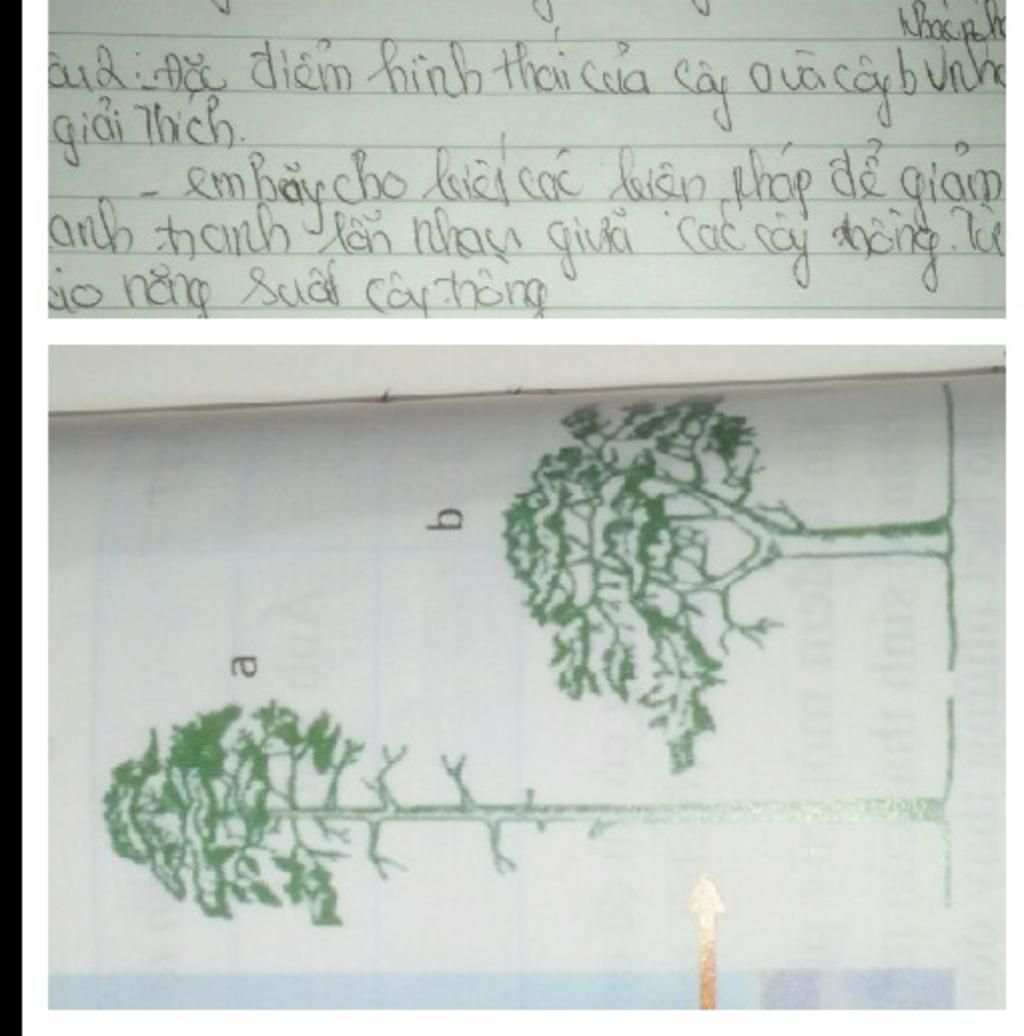 âu2: Đặc điểm hình thái của cây a và cây b
giải thích.
- em hãy cho biết các biện pháp để giảm
anh tranh lẫn nhau giữa các cây thông.
năng suất cây thông
b
a